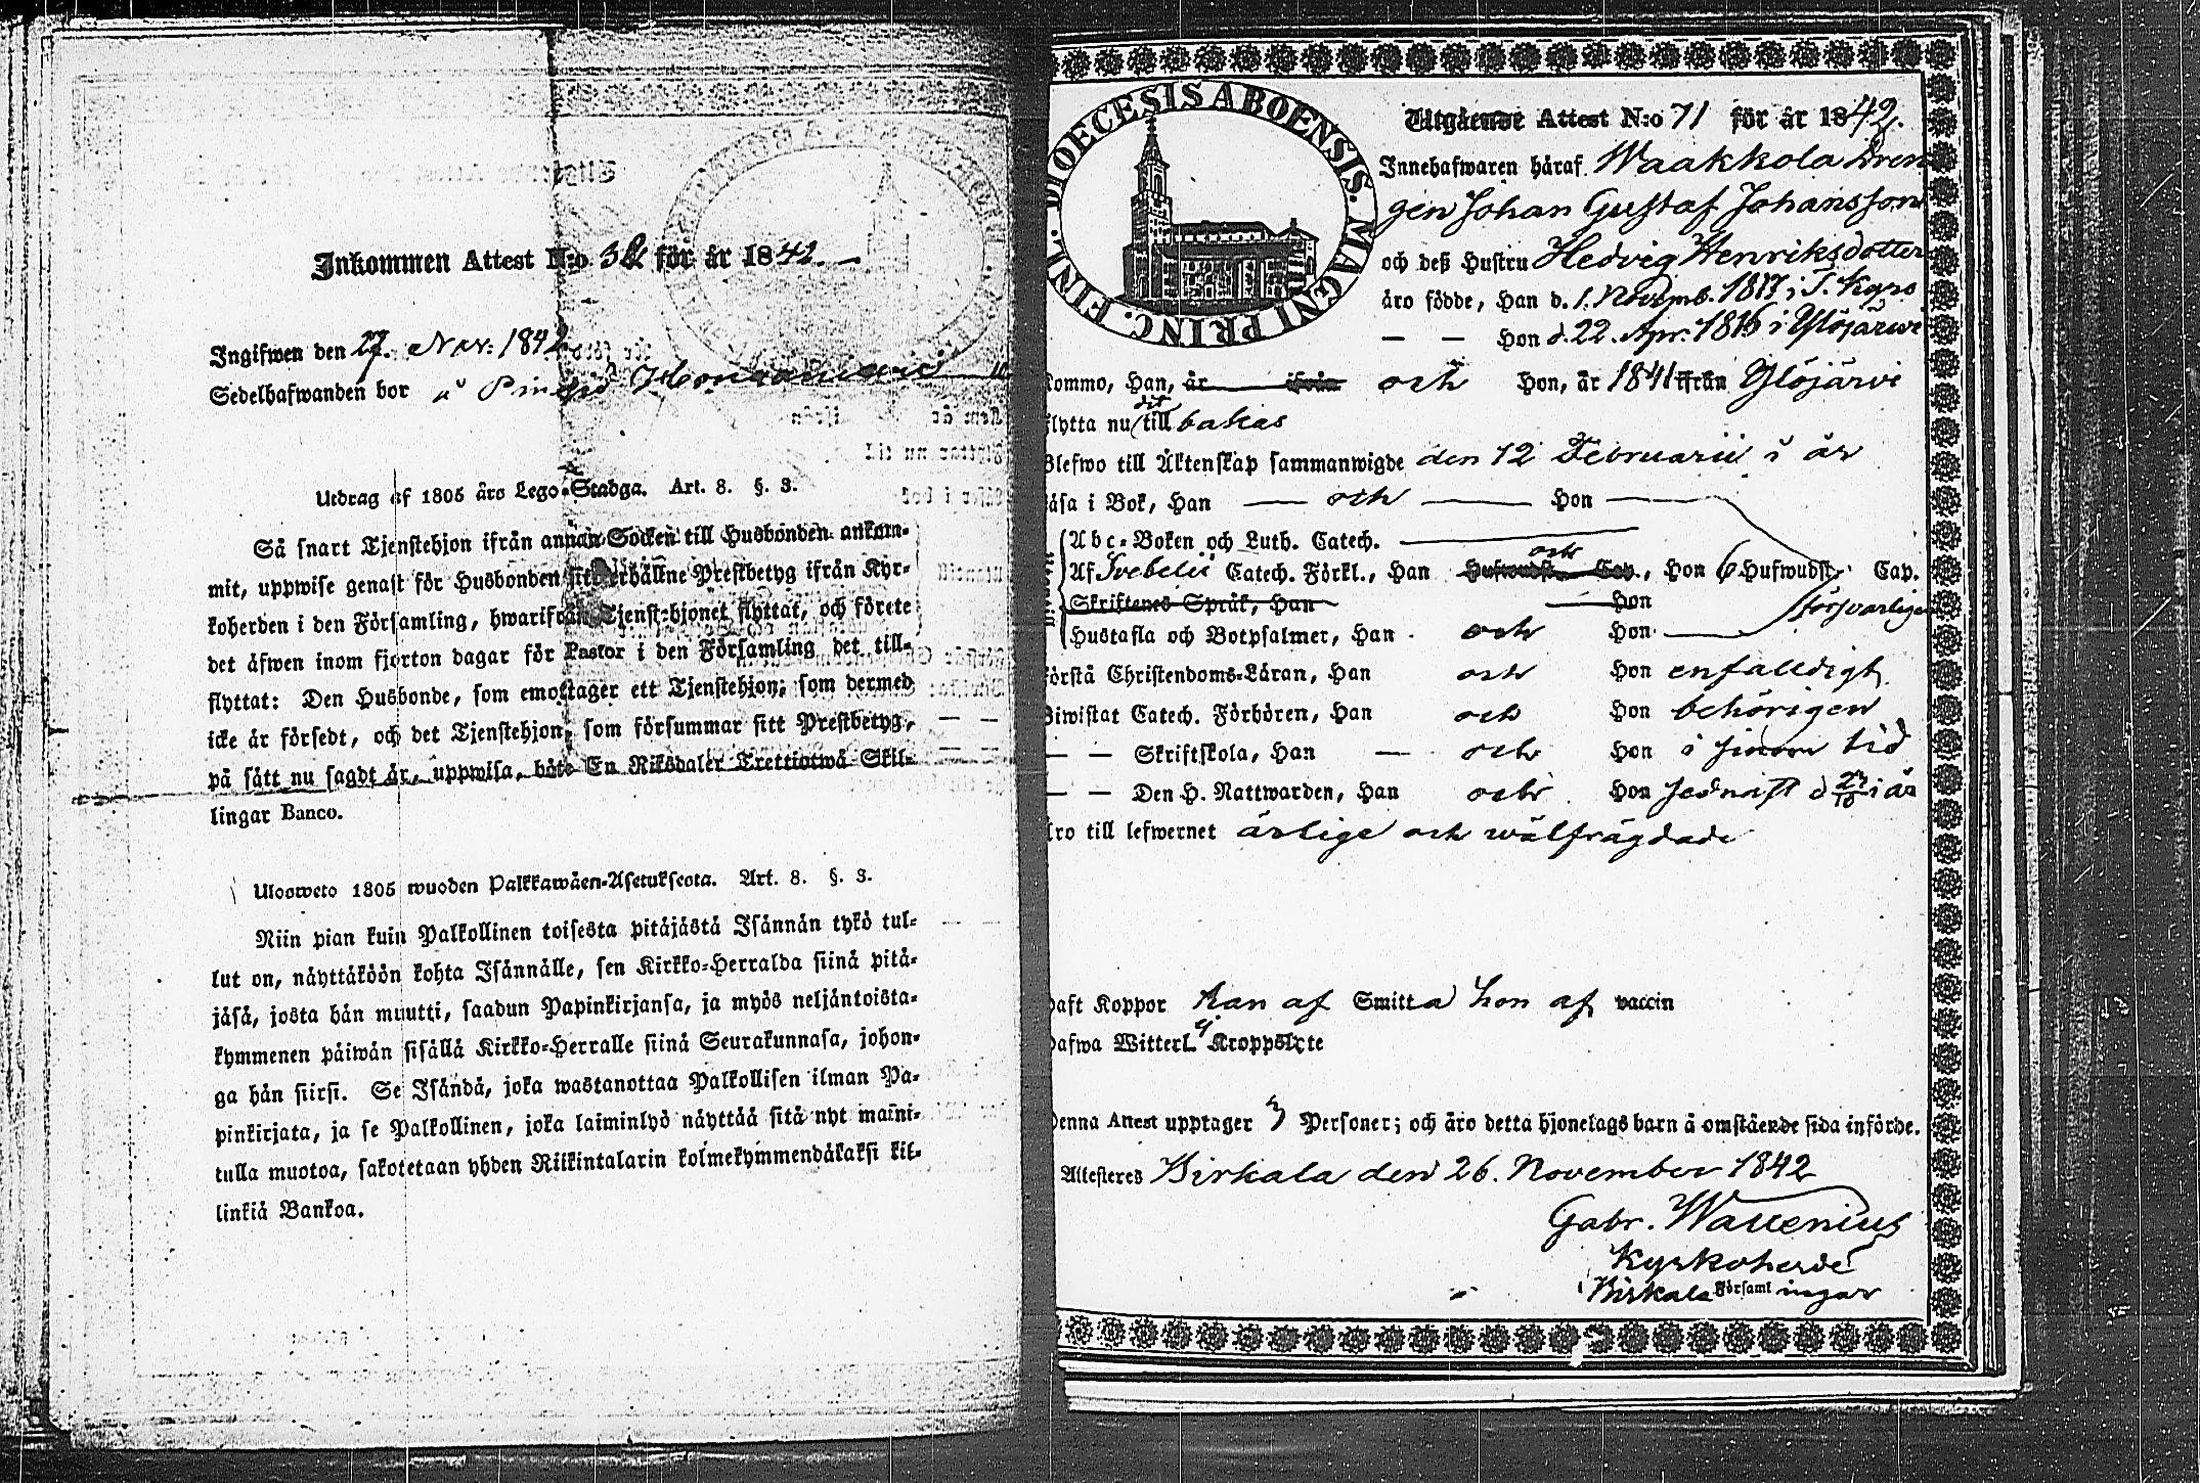 Inkommen Attest N:o 32 för år 1842.
Ingifwen den 27. Nov: 1842
Sedelhafwanden bor å
Utdrag af 1805 års Lego-Stadga. Art. 8. §. 3.
Så snart Tjenstehjon ifrån annan Socken till Husbonden ankom-
mit, uppwise genast för Husbonden sitt erhållne Prestbetyg ifrån Kyr-
koherden i den Församling, hwarifrån Tjenstehjonet flyttat, och förete
det äfwen inom fjorton dagar för Pastor i den Församling det till-
flyttat: Den Husbonde, som emottager ett Tjenstehjon, som dermed
icke är försedt, och det Tjenstehjon, som försummar sitt Prestbetyg,
på sätt nu sagdt är, uppwisa, böte En Riksdaler Trettiotwå Skil-
lingar Banco.
Ulosweto 1805 wuoden Palkkawäen-Asetuksesta. Art. 8. §. 3.
Niin pian kuin Palkollinen toisesta pitäjästä Isännän tykö tul-
lut on, näyttäköön kohta Isännälle, sen Kirkko-Herralda siinä pitä-
jäsä, josta hän muutti, saadun Papinkirjansa, ja myös neljäntoista-
kymmenen päiwän sisällä Kirkko-Herralle siinä Seurakunnasa, johon-
ga hän siirsi. Se Isändä, joka wastanottaa Palkollisen ilman Pa-
pinkirjata, ja se Palkollinen, joka laiminlyö näyttää sitä nyt maini-
tulla muotoa, sakotetaan yhden Riikintalarin kolmekymmendäkaksi kil-
linkiä Bankoa.
DIOECESIS ABOENSIS. MAGNI PRINC. FINL.
Utgående Attest N:o 71 för år 1842.
Innehafwaren häraf Waakkola Dren
gen Johan Gustaf Johansson
och deß Hustru Hedvig Henriksdotter
äro födde, Han d. 1. Novemb. 1817 i T. Kyro
— — Hon d. 22. Apr. 1816 i Ylöjärwi
kommo, Han, är ifrån och Hon, är 1841 ifrån Ylöjärvi
flytta nu dit till bakas
Blefwo till Äktenskap sammanwigde den 12 Februarii i år
läsa i Bok, Han — och — Hon —
Abc-Boken och Luth. Catech. —
Af Svebelii Catech. Förkl., Han Hufwudst. Cap., och Hon 6 Hufwudst. Cap.
Skriftenes Språk, Han — Hon försvarligen
Hustafla och Botpsalmer, Han och Hon —
förstå Christendoms-Läran, Han och Hon enfalldigt
Biwistat Catech. Förhören, Han och Hon behörigen
— — Skriftskola, Han — och Hon i sinom tid
— — Den H. Nattwarden, Han och Hon sednast d 23/10 i år
äro till lefwernet ärlige och wälfrägdade
haft Koppor han af Smitta hon af vaccin
hafwa Witterl. ej Kroppslyte
Denna Attest upptager 3 Personer; och äro detta hjonelags barn å omstående sida införde.
Attesteres Birkala den 26. November 1842
Gabr. Wallenius
Kyrkoherde
i Birkala Församlingar